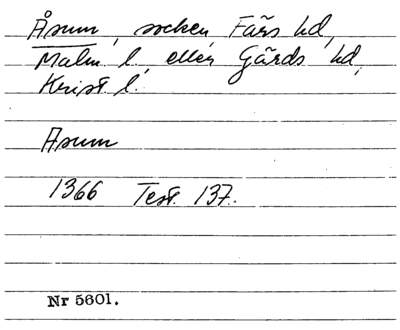 Åsum, socken, Färs hd,
Malm. l. eller Gärds hd,
Krist. l.
Asum
1366 Test. 137.
Nr 5601.